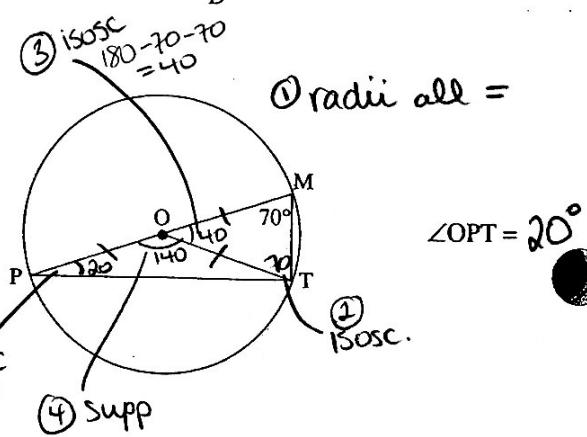 ③ isosc
180-70-70
= 40
① radii all =
M
O
70°
40
∠OPT = 20°
140
20
70
P
T
②
isosc.
c
④ supp